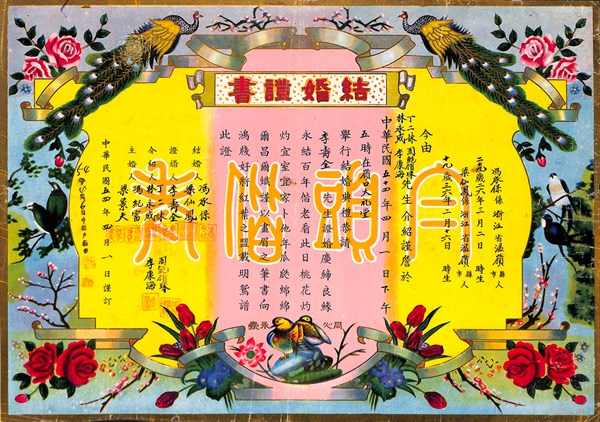 結婚證書
白頭偕老
今由
馮承保係浙江省溫嶺縣市人
二九歲 年二月一日 時生
梁仙鳳係浙江省溫嶺縣市人
十九歲三六年二月六日 時生
丁二妹 林永成 李康海 先生介紹謹詹於
中華民國五十四年四月一日下午
五時在 大礼堂
舉行結婚典禮恭請
李壽全先生證婚慶締良緣
永結百年偕老看此日桃花灼
灼宜室宜家卜他年瓜瓞綿綿
爾昌爾熾謹以畫眉之筆書向
鴻牋好將紅葉之盟載明鴛譜
此證
結婚人 馮承保 梁仙鳳
證婚人 李壽全
介紹人 丁二妹 林永成 李康海
主婚人 馮
中華民國五四年四月一日謹訂